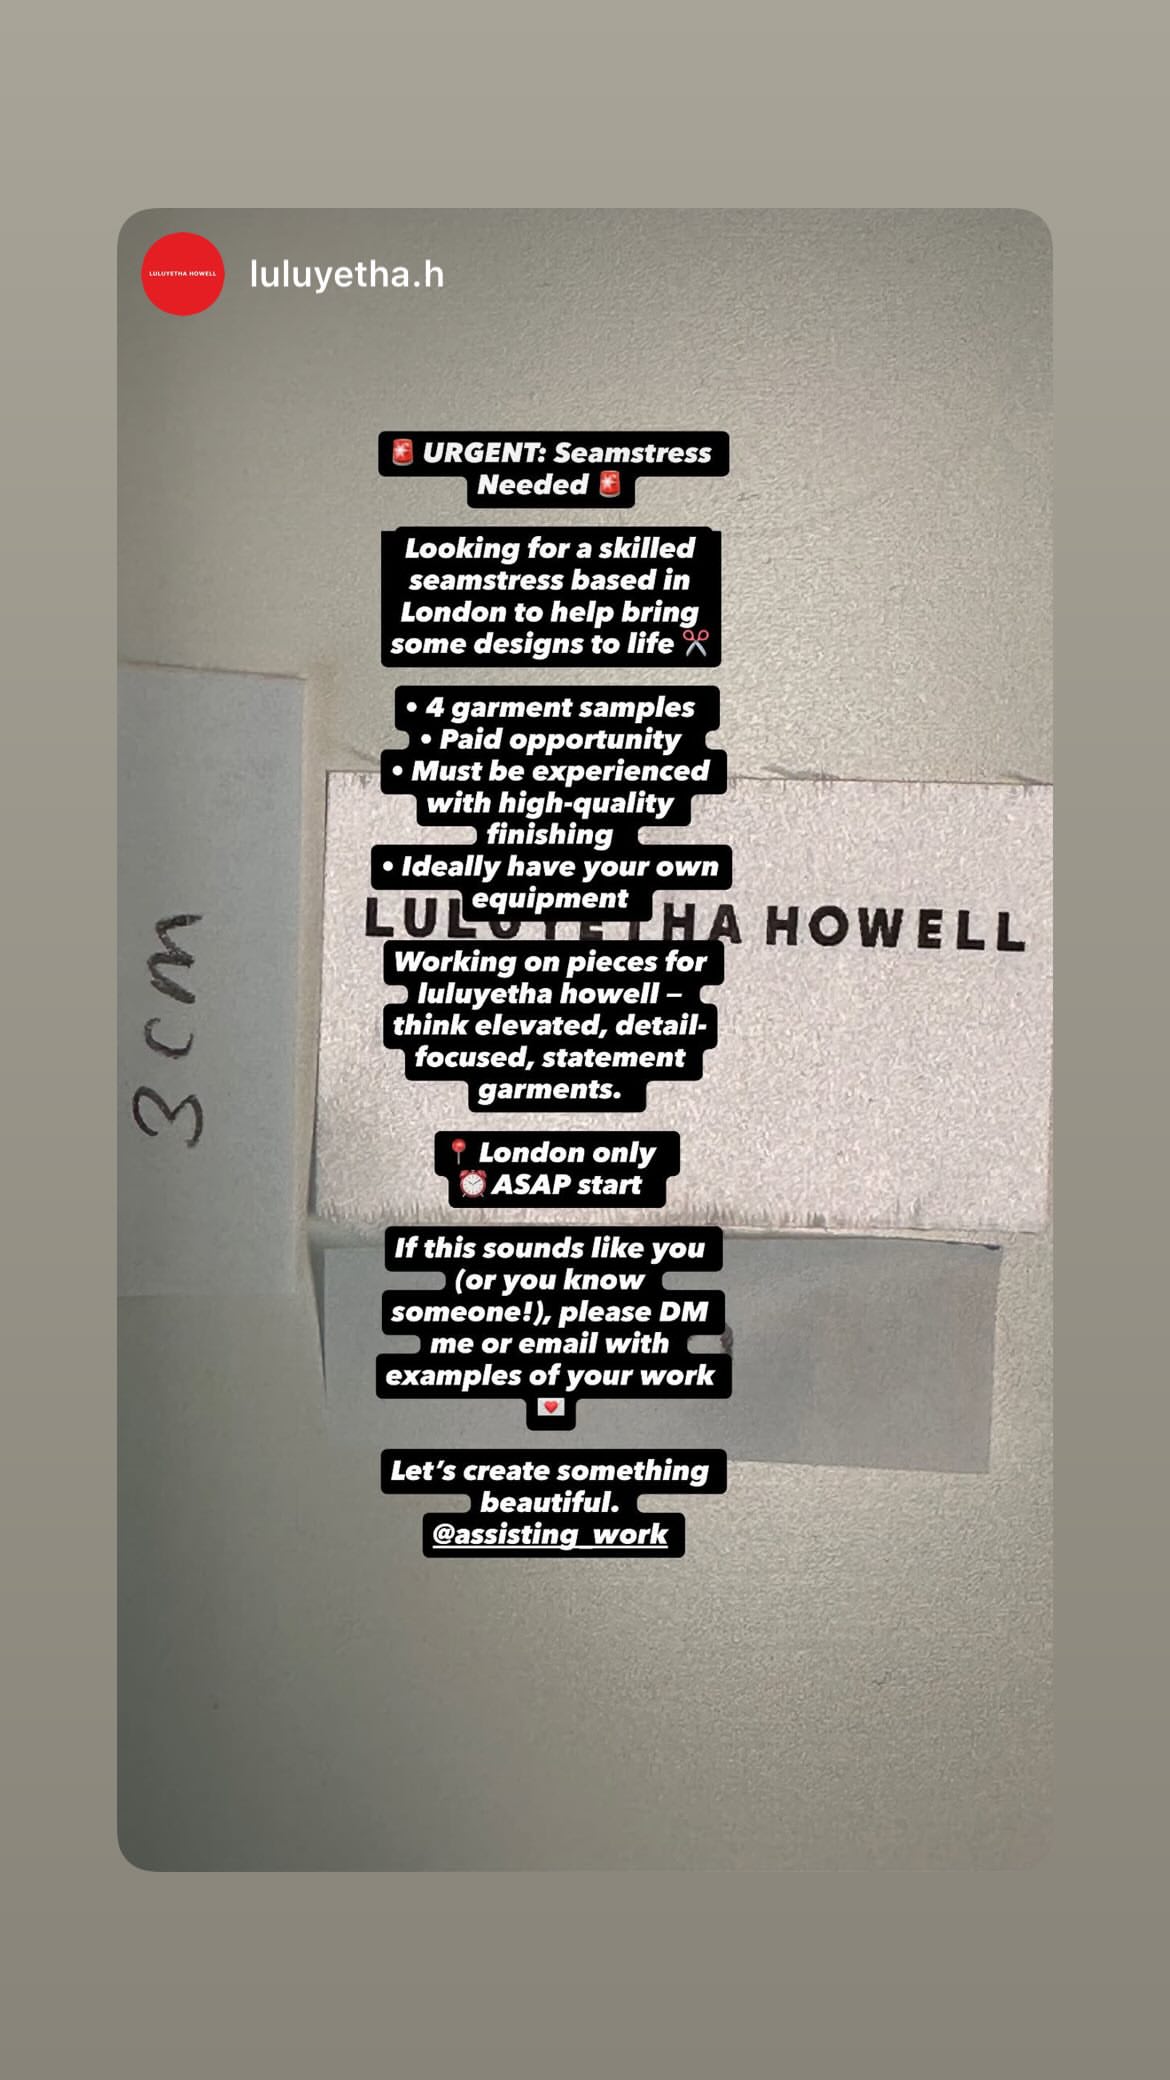 LULUYETHA HOWELL
luluyetha.h
🚨 URGENT: Seamstress
Needed 🚨
Looking for a skilled
seamstress based in
London to help bring
some designs to life ✂️
• 4 garment samples
• Paid opportunity
• Must be experienced
with high-quality
finishing
• Ideally have your own
equipment
LULUYETHA HOWELL
Working on pieces for
luluyetha howell –
think elevated, detail-
focused, statement
garments.
3cm
📍 London only
⏰ ASAP start
If this sounds like you
(or you know
someone!), please DM
me or email with
examples of your work
💌
Let’s create something
beautiful.
@assisting_work